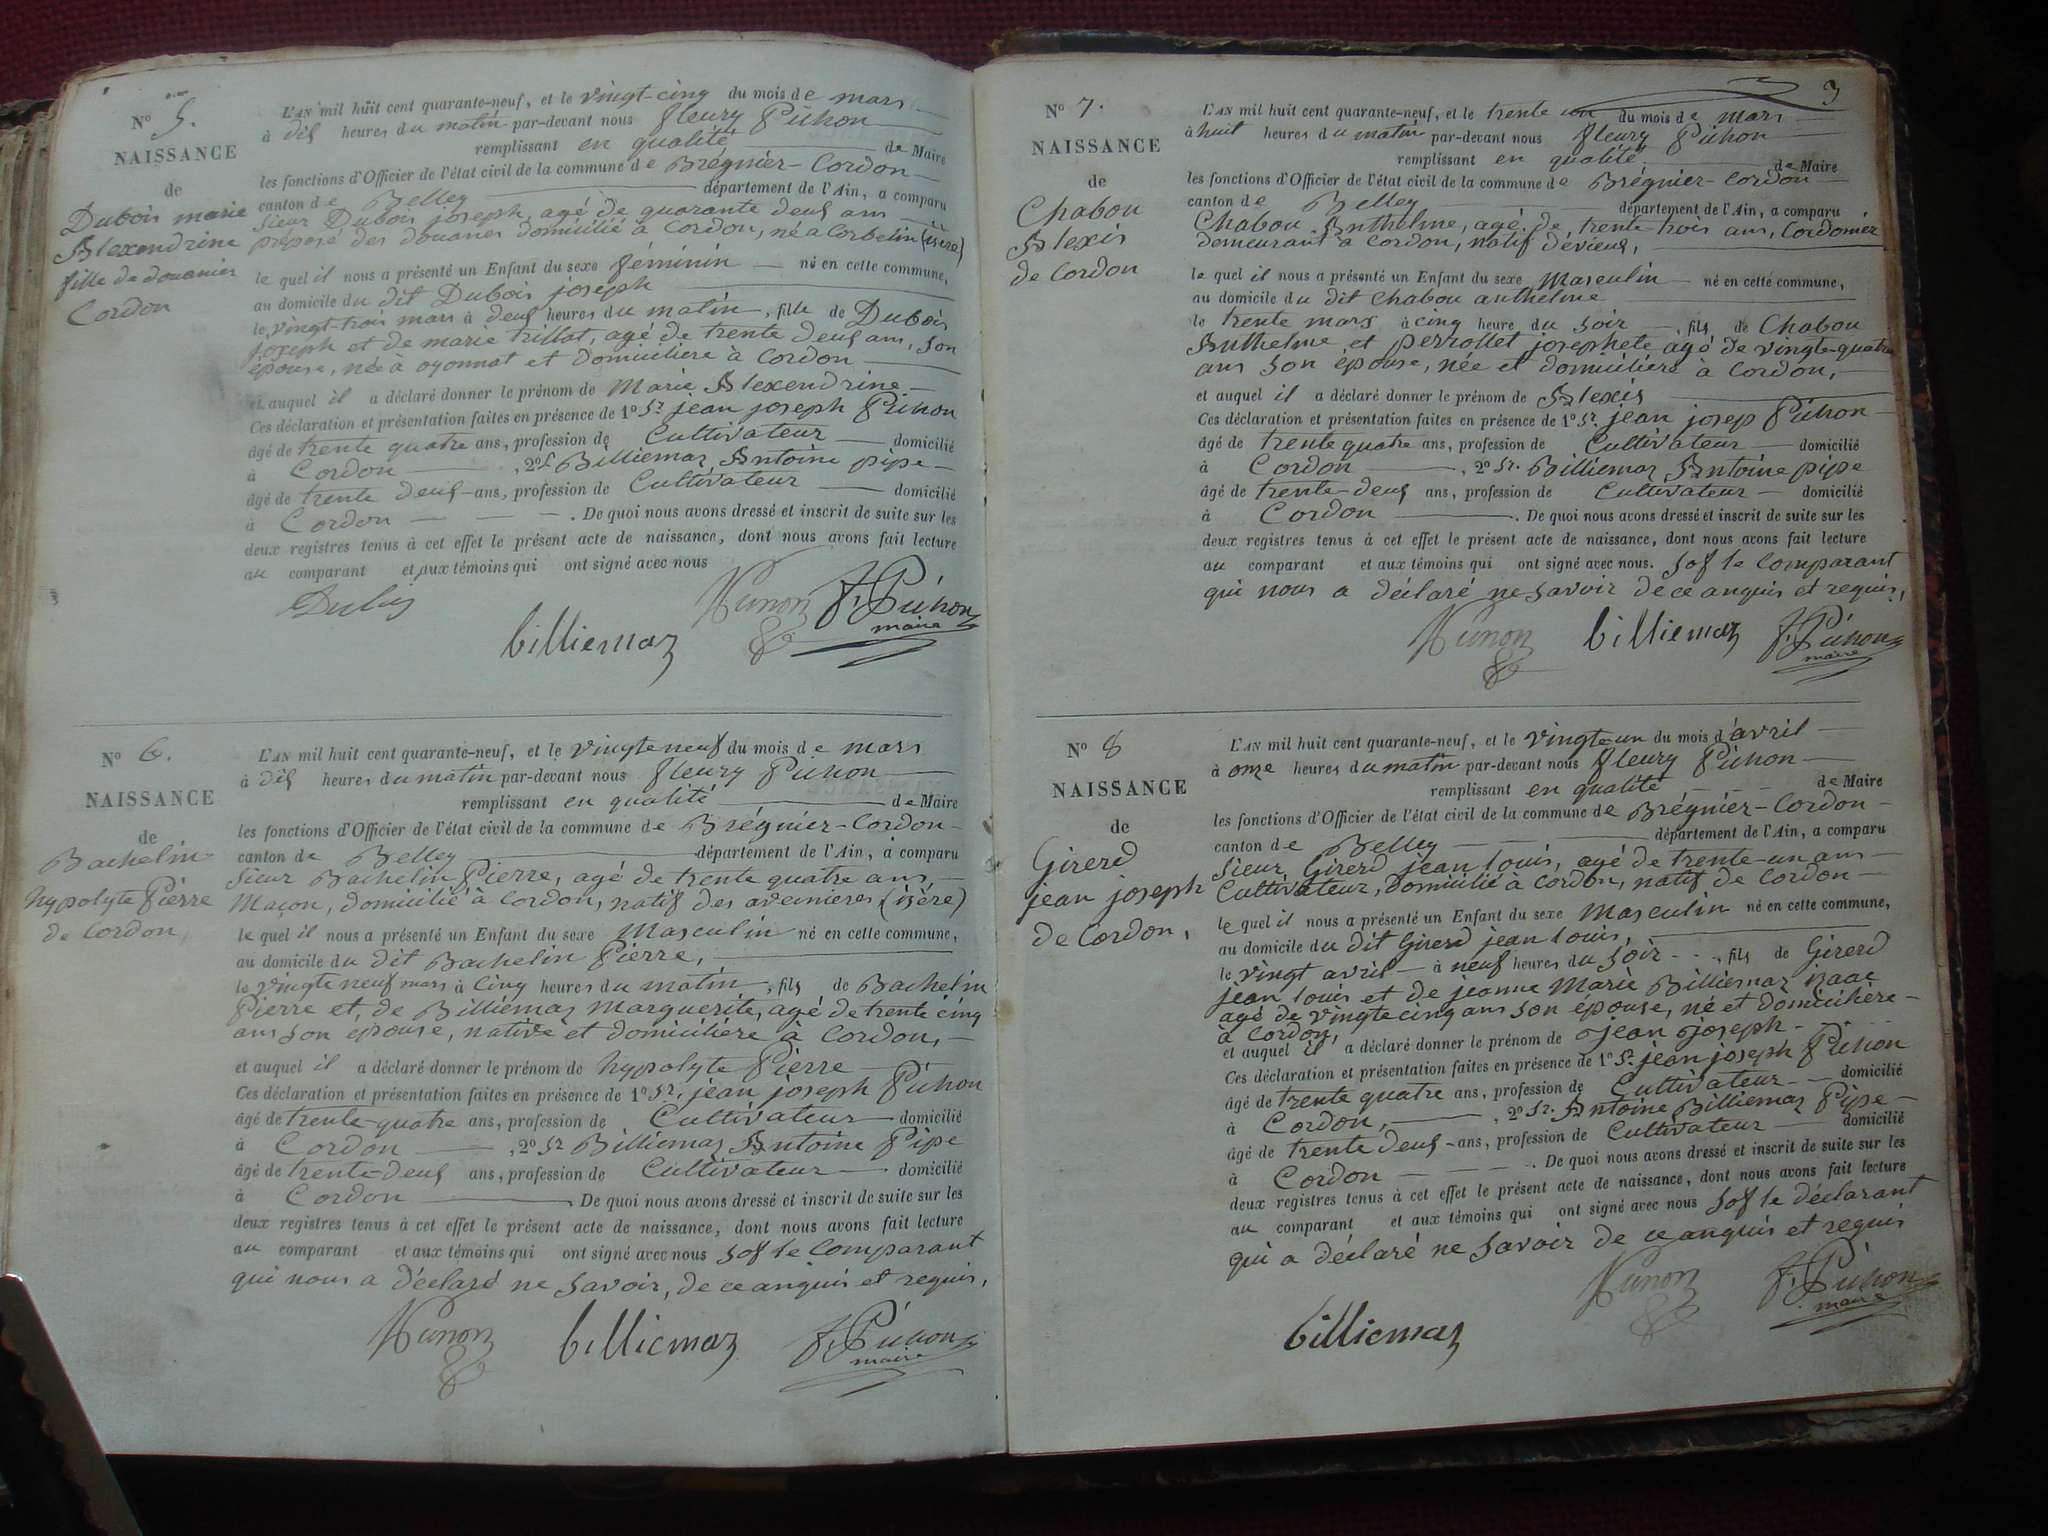 N° 5.
NAISSANCE
de
Dubois marie
Alexendrine
fille de douanier
Cordon
L'AN mil huit cent quarante-neuf, et le vingt-cinq du mois de mars
à dix heures du matin par-devant nous fleury Pichon
remplissant en qualité de Maire
les fonctions d'Officier de l'état civil de la commune de Brégnier-Cordon
canton de Belley département de l'Ain, a comparu
Sieur Dubois joseph, agé de quarante deux ans
préposé des douanes domicilié à Cordon, né a Corbelin (isère)
le quel il nous a présenté un Enfant du sexe féminin né en cette commune,
au domicile du dit Dubois joseph
le vingt-trois mars à deux heures du matin, fille de Dubois
joseph et de marie trillat, agé de trente deux ans, son
épouse, née à oyonnat et domicilière à Cordon
et auquel il a déclaré donner le prénom de Marie Alexendrine
Ces déclaration et présentation faites en présence de 1° Sr jean joseph Pichon
âgé de trente quatre ans, profession de Cultivateur domicilié
à Cordon , 2° Sr Billiemaz Antoine pipe
âgé de trente deux ans, profession de Cultivateur domicilié
à Cordon . De quoi nous avons dressé et inscrit de suite sur les
deux registres tenus à cet effet le présent acte de naissance, dont nous avons fait lecture
au comparant et aux témoins qui ont signé avec nous
billiemaz F. Pichon
maire
N° 6.
NAISSANCE
de
Bachelin
hypolyte Pierre
de Cordon,
L'AN mil huit cent quarante-neuf, et le vingte neuf du mois de mars
à dix heures du matin par-devant nous fleury Pichon
remplissant en qualité de Maire
les fonctions d'Officier de l'état civil de la commune de Brégnier-Cordon
canton de Belley département de l'Ain, a comparu
Sieur Bachelin Pierre, agé de trente quatre ans
Maçon, domicilié à Cordon, natif des avenieres (isère)
le quel il nous a présenté un Enfant du sexe Masculin né en cette commune,
au domicile du dit Bachelin Pierre,
le vingte neuf mars à Cinq heures du matin, fils de Bachelin
Pierre et, de Billiemaz Marguerite, agé de trente cinq
ans son épouse, native et domicilière à Cordon,
et auquel il a déclaré donner le prénom de hypolyte Pierre
Ces déclaration et présentation faites en présence de 1° Sr. jean joseph Pichon
âgé de trente-quatre ans, profession de Cultivateur domicilié
à Cordon , 2° Sr Billiemaz Antoine Pipe
âgé de trente-deux ans, profession de Cultivateur domicilié
à Cordon De quoi nous avons dressé et inscrit de suite sur les
deux registres tenus à cet effet le présent acte de naissance, dont nous avons fait lecture
au comparant et aux témoins qui ont signé avec nous sof le Comparant
qui nous a déclaré ne savoir, de ce anquis et requis,
billiemaz F. Pichon
maire
3
N° 7.
NAISSANCE
de
Chabou
Alexis
de Cordon
L'AN mil huit cent quarante-neuf, et le trente un du mois de mars
à huit heures du matin par-devant nous fleury Pichon
remplissant en qualité de Maire
les fonctions d'Officier de l'état civil de la commune de Brégnier-Cordon
canton de Belley département de l'Ain, a comparu
Chabou Anthelme, agé de, trente-trois ans, Cordonier
demeurant à Cordon, natif d'évieux,
le quel il nous a présenté un Enfant du sexe Masculin né en cette commune,
au domicile du dit Chabou anthelme
le trente mars à cinq heure du soir , fils de Chabou
Anthelme et perrollet josephete agé de vingte-quatre
ans son épouse, née et domicilière à Cordon,
et auquel il a déclaré donner le prénom de Alexis
Ces déclaration et présentation faites en présence de 1° Sr. jean josep Pichon
âgé de trente quatre ans, profession de Cultivateur domicilié
à Cordon , 2° Sr. Billiemaz Antoine pipe
âgé de trente-deux ans, profession de Cultivateur domicilié
à Cordon . De quoi nous avons dressé et inscrit de suite sur les
deux registres tenus à cet effet le présent acte de naissance, dont nous avons fait lecture
au comparant et aux témoins qui ont signé avec nous. sof le Comparant
qui nous a déclaré ne savoir de ce anquis et requis,
billiemaz F. Pichon
maire
N° 8
NAISSANCE
de
Girerd
jean joseph
de Cordon,
L'AN mil huit cent quarante-neuf, et le vingte un du mois d'avril
à onze heures du matin par-devant nous fleury Pichon
remplissant en qualité de Maire
les fonctions d'Officier de l'état civil de la commune de Brégnier-Cordon
canton de Belley département de l'Ain, a comparu
Sieur, Girerd jean louis, agé de trente-un ans
Cultivateur, domicilié à Cordon, natif de Cordon
le quel il nous a présenté un Enfant du sexe Masculin né en cette commune,
au domicile du dit Girerd jean louis,
le vingt avril à neuf heures du soir , fils de Girerd
jean louis et de jeanne Marie Billiemaz isaac
agé de vingte cinq ans son épouse, né et domicilière
à Cordon,
et auquel il a déclaré donner le prénom de jean joseph
Ces déclaration et présentation faites en présence de 1° Sr. jean joseph Pichon
âgé de trente quatre ans, profession de Cultivateur domicilié
à Cordon, , 2° Sr. Antoine Billiemaz Pipe
âgé de trente deux ans, profession de Cultivateur domicilié
à Cordon . De quoi nous avons dressé et inscrit de suite sur les
deux registres tenus à cet effet le présent acte de naissance, dont nous avons fait lecture
au comparant et aux témoins qui ont signé avec nous sof le déclarant
qui a déclaré ne savoir de ce anquis et requis
billiemaz F. Pichon
maire